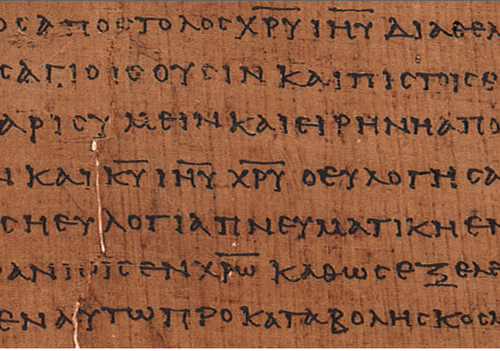 ΟϹΑΠΟϹΤΟΛΟϹ Χ̅Ρ̅Υ̅ Ι̅Η̅Υ̅ ΔΙΑΘΕΛ
ϹΑΓΙΟΙϹΟΥϹΙΝ ΚΑΙΠΙϹΤΟΙϹΕ
ΑΡΙϹΥΜΕΙΝΚΑΙΕΙΡΗΝΗΑΠΟ
Ν ΚΑΙ Κ̅Υ̅ Ι̅Η̅Υ̅ Χ̅Ρ̅Υ̅ ΟΕΥΛΟΓΗϹΑ
ϹΗΕΥΛΟΓΙΑΠΝΕΥΜΑΤΙΚΗΕΝ
ΑΝΙΟΙϹΕΝ Χ̅Ρ̅Ω̅ ΚΑΘΩϹΕΞΕΛΕ
ΕΝΑΥΤΩΠΡΟΚΑΤΑΒΟΛΗϹΚΟϹΜ